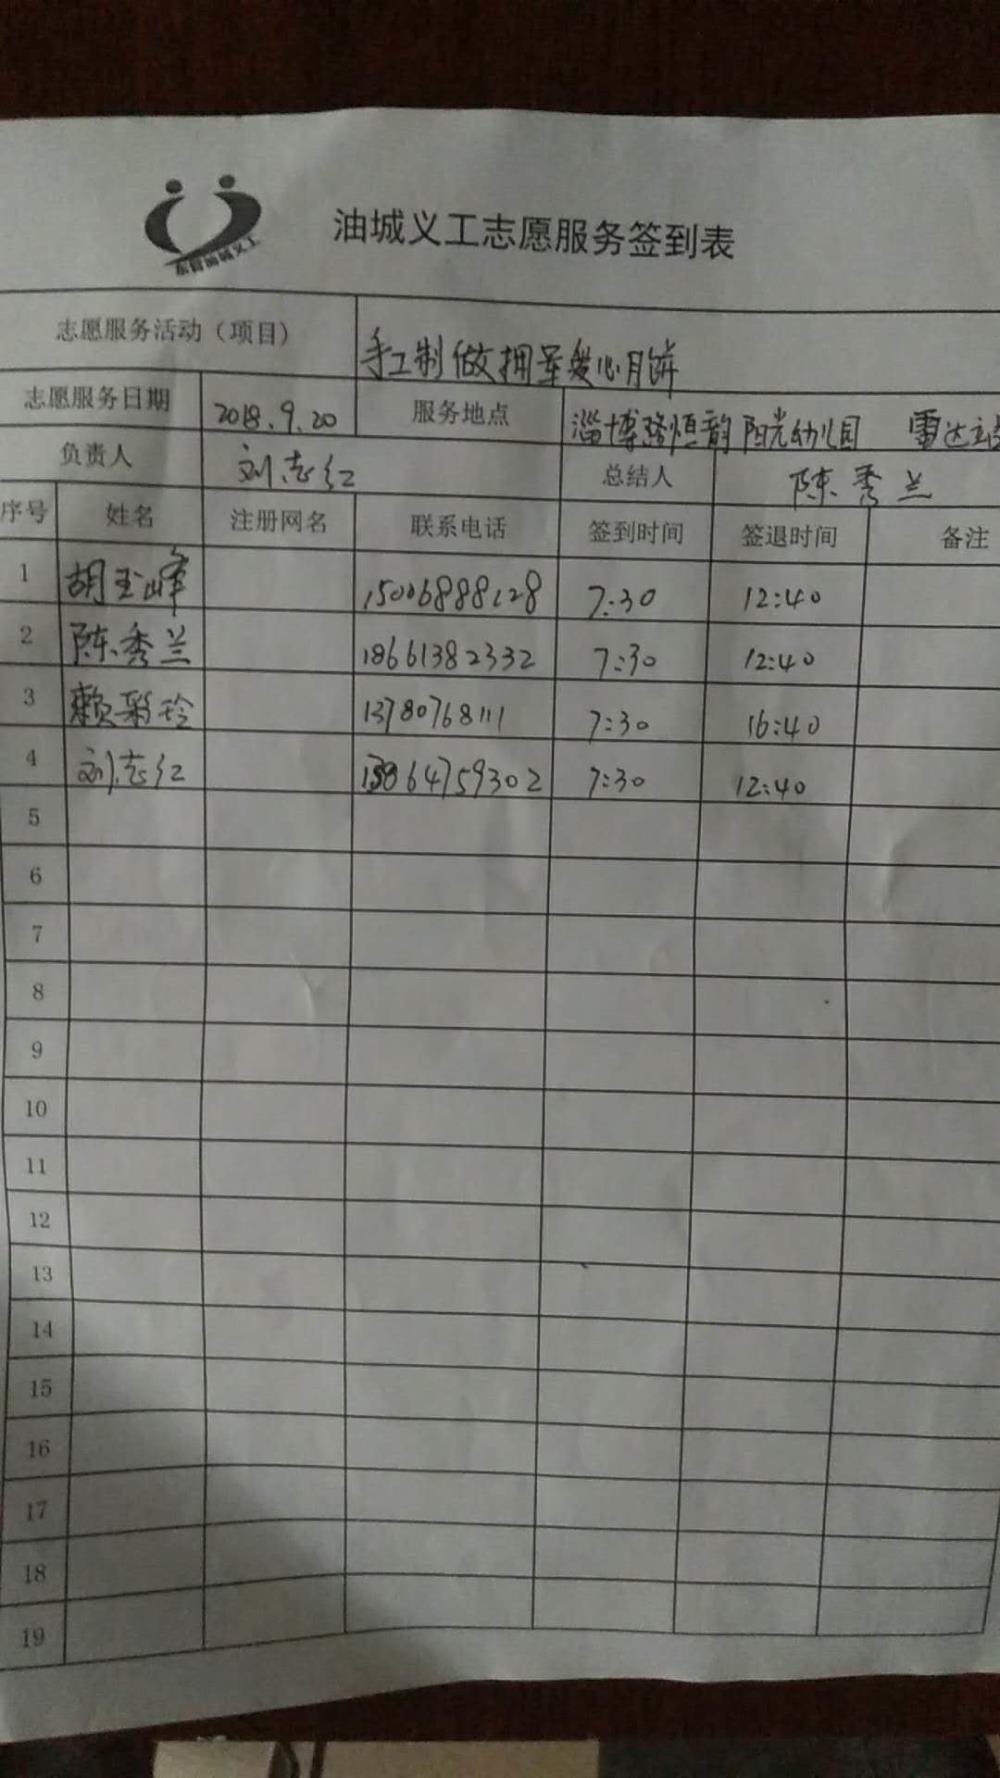 东营油城义工
油城义工志愿服务签到表
志愿服务活动（项目） 手工制做拥军爱心月饼
志愿服务日期 2018.9.20 服务地点 淄博路恒韵阳光幼儿园 雷达站
负责人 刘志红 总结人 陈秀兰
序号 姓名 注册网名 联系电话 签到时间 签退时间 备注
1 胡玉峰 15006888128 7:30 12:40
2 陈秀兰 18661382332 7:30 12:40
3 赖彩玲 13780768111 7:30 16:40
4 刘志红 13864759302 7:30 12:40
5
6
7
8
9
10
11
12
13
14
15
16
17
18
19